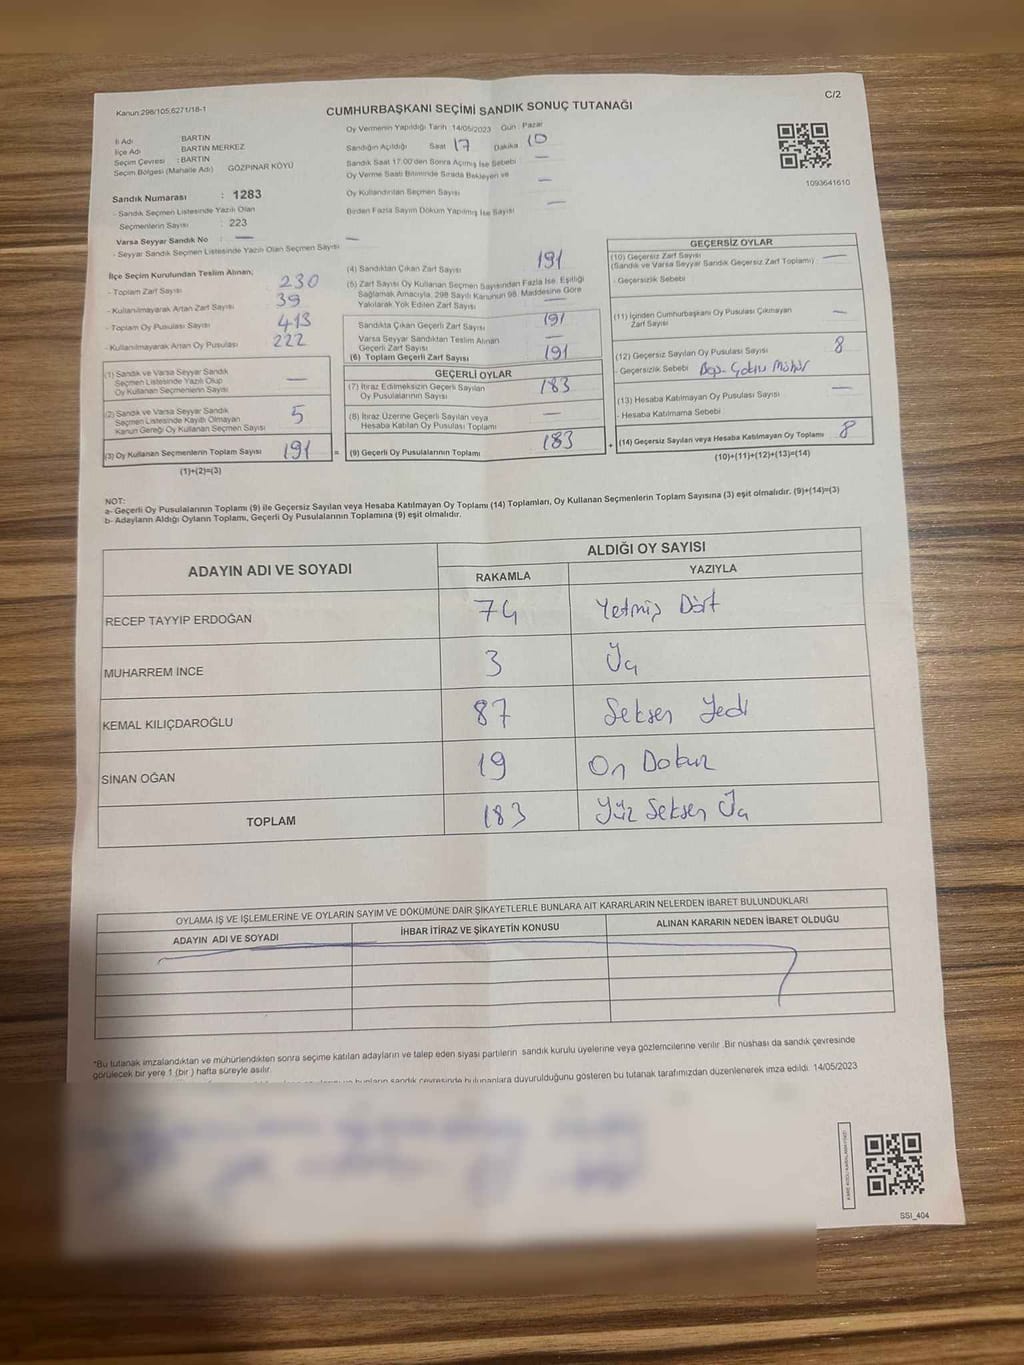 C/2
Kanun:298/105;6271/18-1
CUMHURBAŞKANI SEÇİMİ SANDIK SONUÇ TUTANAĞI
İl Adı : BARTIN
İlçe Adı BARTIN MERKEZ
Seçim Çevresi : BARTIN
Seçim Bölgesi (Mahalle Adı) GÖZPINAR KÖYÜ
Oy Vermenin Yapıldığı Tarih :14/05/2023 Gün : Pazar
Sandığın Açıldığı Saat 17 Dakika 10
Sandık Saat 17.00'den Sonra Açılmış İse Sebebi —
Oy Verme Saati Bitiminde Sırada Bekleyen ve
Oy Kullandırılan Seçmen Sayısı —
Birden Fazla Sayım Döküm Yapılmış İse Sayısı —
1093641610
Sandık Numarası : 1283
- Sandık Seçmen Listesinde Yazılı Olan
Seçmenlerin Sayısı : 223
Varsa Seyyar Sandık No : —
- Seyyar Sandık Seçmen Listesinde Yazılı Olan Seçmen Sayısı —
İlçe Seçim Kurulundan Teslim Alınan;
- Toplam Zarf Sayısı 230
- Kullanılmayarak Artan Zarf Sayısı 39
- Toplam Oy Pusulası Sayısı 413
- Kullanılmayarak Artan Oy Pusulası 222
(1) Sandık ve Varsa Seyyar Sandık
Seçmen Listesinde Yazılı Olup
Oy Kullanan Seçmenlerin Sayısı —
(2) Sandık ve Varsa Seyyar Sandık
Seçmen Listesinde Kayıtlı Olmayan
Kanun Gereği Oy Kullanan Seçmen Sayısı 5
(3) Oy Kullanan Seçmenlerin Toplam Sayısı 191 =
(1)+(2)=(3)
(4) Sandıktan Çıkan Zarf Sayısı 191
(5) Zarf Sayısı Oy Kullanan Seçmen Sayısından Fazla İse, Eşitliği
Sağlamak Amacıyla, 298 Sayılı Kanunun 98. Maddesine Göre
Yakılarak Yok Edilen Zarf Sayısı —
Sandıkta Çıkan Geçerli Zarf Sayısı 191
Varsa Seyyar Sandıktan Teslim Alınan
Geçerli Zarf Sayısı —
(6) Toplam Geçerli Zarf Sayısı 191
GEÇERLİ OYLAR
(7) İtiraz Edilmeksizin Geçerli Sayılan
Oy Pusulasının Sayısı 183
(8) İtiraz Üzerine Geçerli Sayılan veya
Hesaba Katılan Oy Pusulası Toplamı —
(9) Geçerli Oy Pusulalarının Toplamı 183 +
GEÇERSİZ OYLAR
(10) Geçersiz Zarf Sayısı
(Sandık ve Varsa Seyyar Sandık Geçersiz Zarf Toplamı) : —
- Geçersizlik Sebebi
(11) İçinden Cumhurbaşkanı Oy Pusulası Çıkmayan
Zarf Sayısı —
(12) Geçersiz Sayılan Oy Pusulası Sayısı 8
- Geçersizlik Sebebi Boş-Çoklu Mühür
(13) Hesaba Katılmayan Oy Pusulası Sayısı —
- Hesaba Katılmama Sebebi
(14) Geçersiz Sayılan veya Hesaba Katılmayan Oy Toplamı 8
(10)+(11)+(12)+(13)=(14)
NOT:
a- Geçerli Oy Pusulalarının Toplamı (9) ile Geçersiz Sayılan veya Hesaba Katılmayan Oy Toplamı (14) Toplamları, Oy Kullanan Seçmenlerin Toplam Sayısına (3) eşit olmalıdır. (9)+(14)=(3)
b- Adayların Aldığı Oyların Toplamı, Geçerli Oy Pusulalarının Toplamına (9) eşit olmalıdır.
ADAYIN ADI VE SOYADI ALDIĞI OY SAYISI
RAKAMLA YAZIYLA
RECEP TAYYİP ERDOĞAN 74 Yetmiş Dört
MUHARREM İNCE 3 Üç
KEMAL KILIÇDAROĞLU 87 Seksen Yedi
SİNAN OĞAN 19 On Dokuz
TOPLAM 183 Yüz Seksen Üç
OYLAMA İŞ VE İŞLEMLERİNE VE OYLARIN SAYIM VE DÖKÜMÜNE DAİR ŞİKAYETLERLE BUNLARA AİT KARARLARIN NELERDEN İBARET BULUNDUKLARI
ADAYIN ADI VE SOYADI İHBAR İTİRAZ VE ŞİKAYETİN KONUSU ALINAN KARARIN NEDEN İBARET OLDUĞU
*Bu tutanak imzalandıktan ve mühürlendikten sonra seçime katılan adayların ve talep eden siyasi partilerin sandık kurulu üyelerine veya gözlemcilerine verilir .Bir nüshası da sandık çevresinde
görülecek bir yere 1 (bir ) hafta süreyle asılır.
bunların sandık çevresinde bulunanlara duyurulduğunu gösteren bu tutanak tarafımızdan düzenlenerek imza edildi. 14/05/2023
SSI_404